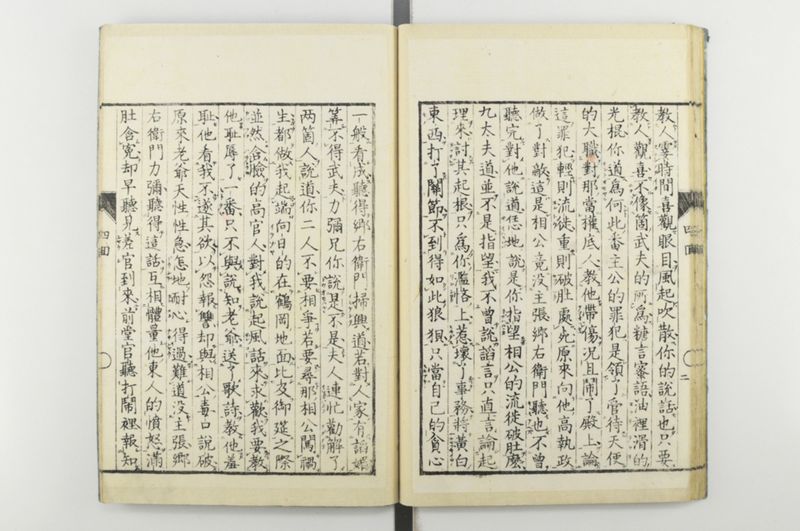 教人霎時間喜觀眼目風起吹散你的說話也只要
教人觀喜不像箇武夫的所為糖言蜜語油裡滑的
光棍你道為何此番主公的罪犯是領了管待天使
的大職對那當權底人教他帶傷況且鬧了殿上論
這罪犯輕則流徙重則破肚處死原來向他高執政
做了對敵這是相公竟没主張鄉右衛門聽也不曾
聽完對他說道恁地說是你指望相公的流徙破肚麽
九太夫道並不是指望我不曾說謟言只直言論起
理來討其起根只為你慳悋上惹壞了事務將黃白
東西打了關節不到得如此狼狽只當自己的貪心
一般看成聽得鄉右衛門掃興道若對人家有謟媚
筭不得武夫力彌兄你說是不是夫人連忙勸解了
两箇人說道你二人不要相爭若要尋那相公闖禍
生都做我起端向日的在鶴岡地面比及御筵之際
並然合臉的高官人對我說起風話来求歡我要教
他耻辱了一番只不與說知老爺送了歌詩教他羞
耻他看我不遂其欲以怨報讐却與相公毒口說破
原來老爺天性性急怎地耐心得過難道没主張鄉
右衛門力彌聽得這話互相體量他東人的憤怒滿
肚含冤却早聽見差官到來前堂官聽打鬧裡報知
四回
四回
二